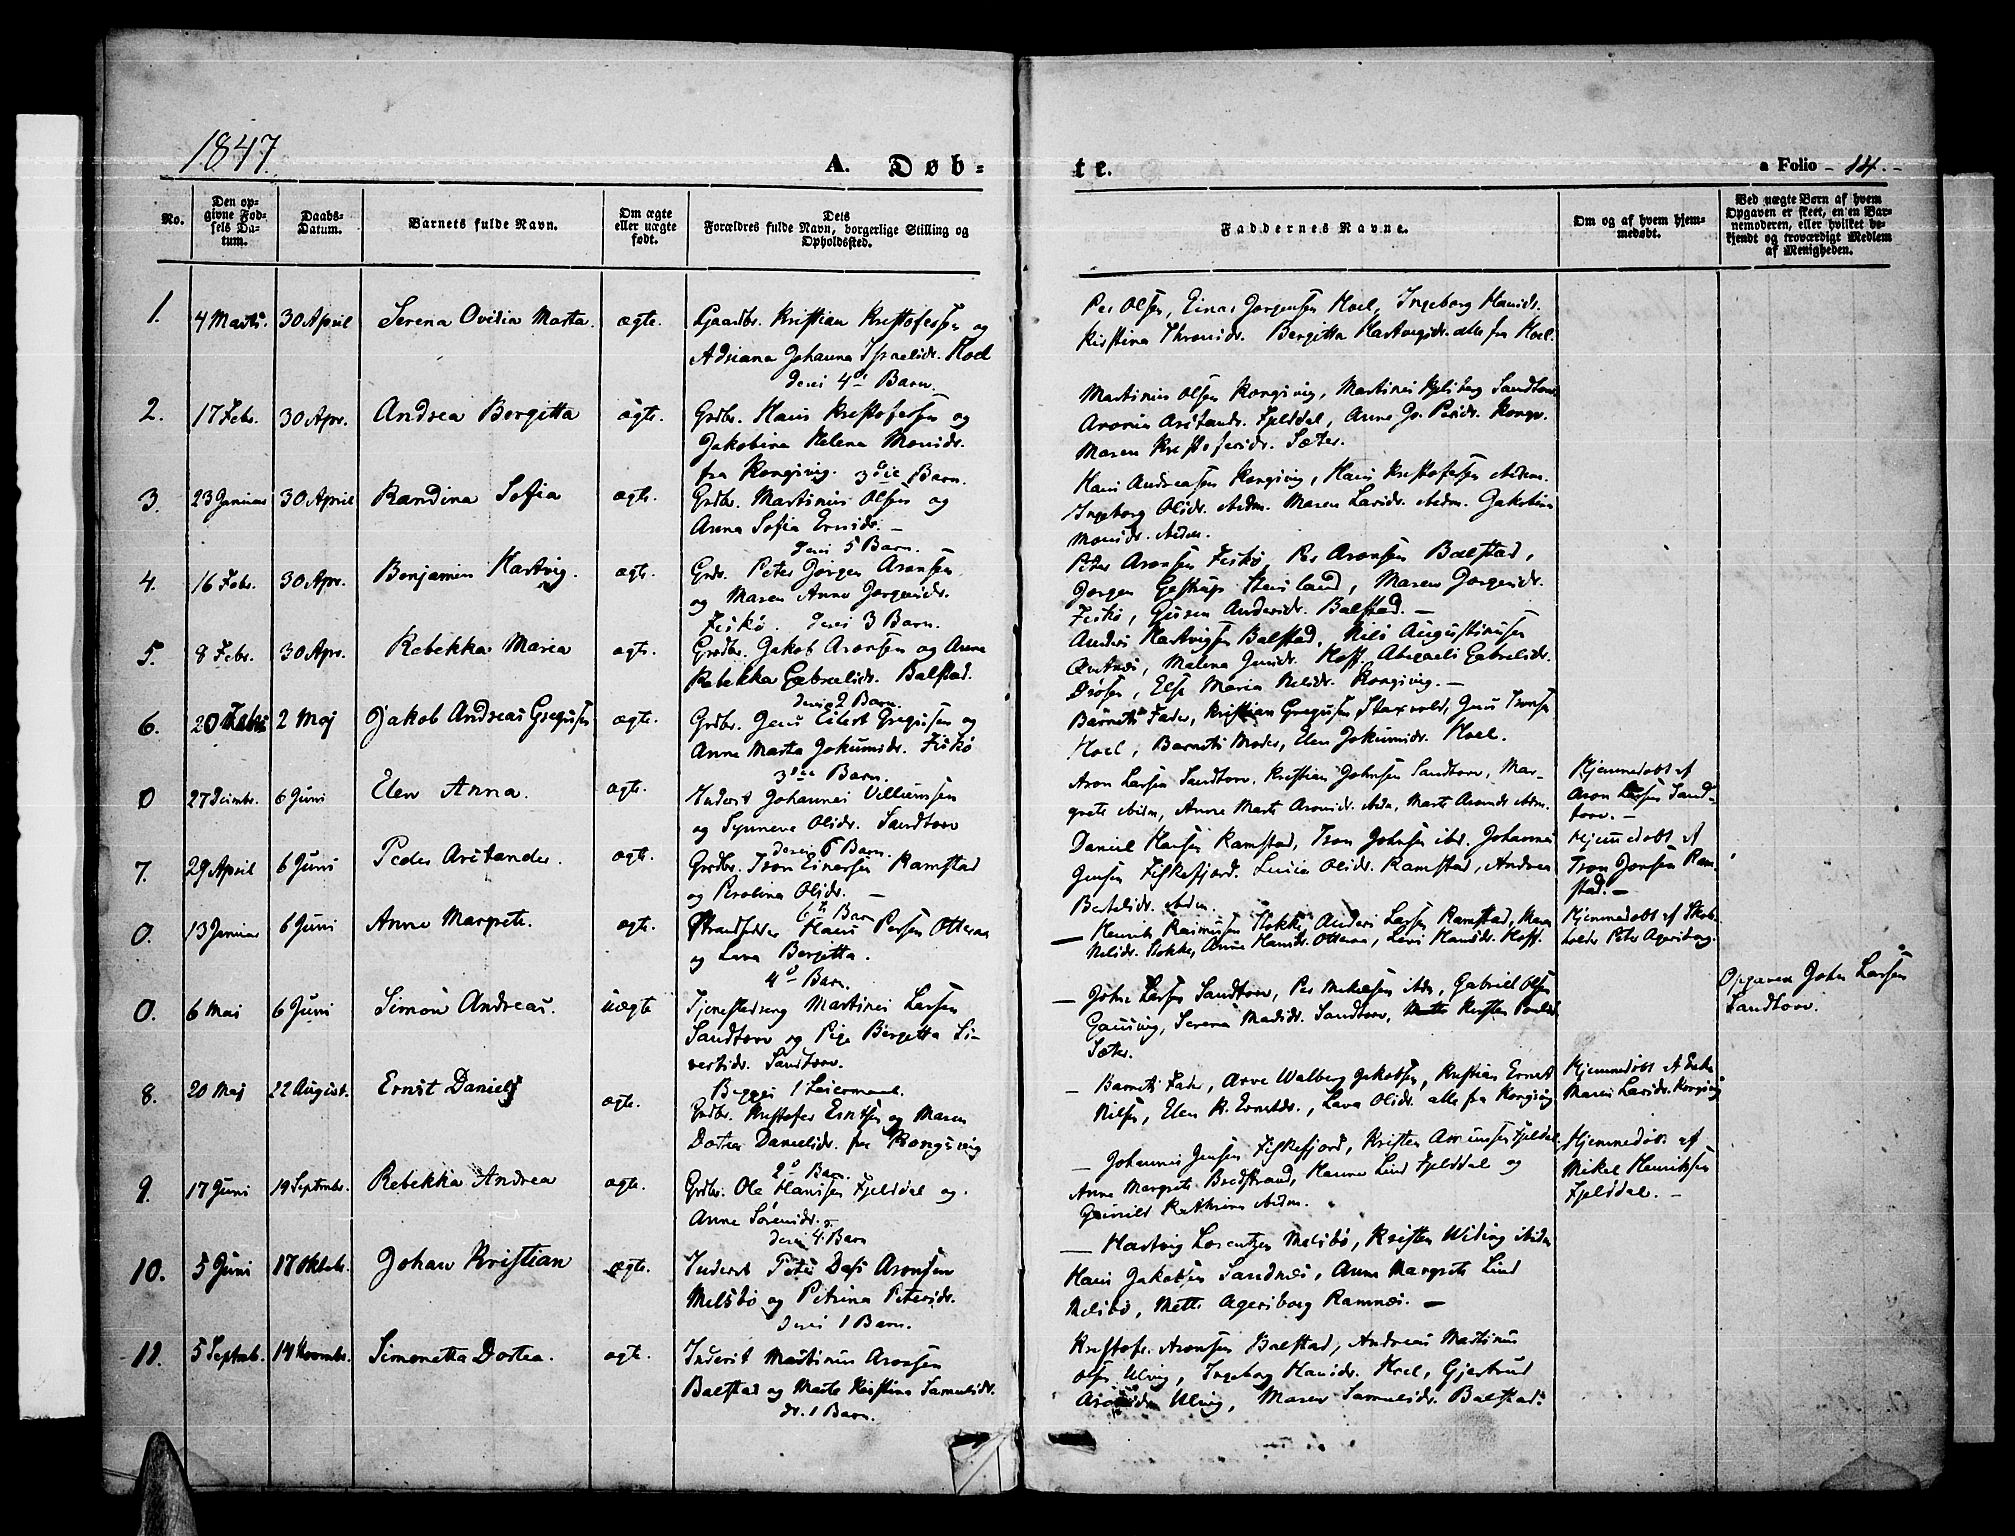 1847.
A. Døb-
te.
a Folio - 14. -
No.
Den op-
givne Fød-
sels Da-
tum.
Daabs-
Datum.
Barnets fulde Navn.
Om ægte
eller uægte
født.
Dets
Forældres fulde Navn, borgerlige Stilling og
Opholdssted.
Faddernes Navne.
Om og af hvem hjem-
medøbt.
Ved uægte Born af hvem
Opgaven er skeet, enen Bar-
nemoderen, eller hvilket be-
kjendt og troværdigt Medlem
af Menigheden.
1. 4 Marts. 30 April Serena Ovidia Marta. ægte.
Gaardbr. Kristian Kristofersen og
Adriana Johanna Israelsdr. Hoel
deres 4de Barn.
Per Olsen, Einar Jørgensen Hoel, Ingeborg Hansdr.
Kristina Thronsdr. Bergitta Hartvigsdr. alle fra Hoel.
2. 17 Febr. 30 Apr. Andrea Bergitta ægte.
Grdbr. Hans Kristofersen og
Jakobina Helena Monsdr.
fra Kongsvig. 3die Barn.
Martinus Olsen Kongsvig, Martines Sandtorv
Aronia Arctandr. Fjelddal, Anne Jo. Persdr. Kongsv.
Maren Kristofersdr. Sæter.
3. 23 Januar 30 April Randina Sofia ægte.
Grdbr. Martinus Olsen og
Arena Sofia Ernsdr. -
deres 5 Barn.
Hans Andreassen Kongsvig, Hans Kristofersen ibidm.
Ingeborg Olsdr. ibidm. Maren Larsdr. ibidm. Jakobina
Monsdr. ibidm.
4. 16 Febr. 30 Apr. Benjamin Hartvig. ægte.
Grdbr. Peter Jørgen Aronsen
og Maren Anne Jørgensdr.
Fiskø. deres 3 Barn.
Peter Aronsen Fiskø, Per Aronsen Balstad,
Jørgen Gestrup Steinsland, Maren Jørgensdr.
Fiskø, Guren Andersdr. Balstad. -
5. 8 Febr. 30 Apr. Rebekka Maria ægte.
Grdbr. Jakob Aronsen og Arena
Rebekka Gabrielsdr. Balstad.
deres 2 Barn.
Anders Hartvigsen Balstad, Nils Augustinusen
Melena Jensdr. Hoff, Abigaels Gabrielsdr.
Else Maria Nilsdr. Kongsvig. -
6. 20 Febr. 2 Maj Jakob Andreas Gregusen ægte.
Grdbr. Jens Eilert Gregusen og
Anne Marta Jokumsdr. Fiskø
3die Barn.
Barnets Fader, Kristian Gregusen Staxvold, Jens Tronsen
Hoel, Barnets Moder, Elen Jokumsdr. Hoel.
0 27 Decembr. 6 Juni Elen Anna. ægte.
Inderst Johannes Villumsen
og Synneva Olsdr. Sandtorv
deres 6 Barn.
Aron Larsen Sandtorv, Kristian Johnsen Sandtorv, Mar-
grete ibidm, Anne Marta Aronsdr. ibidm, Marit Aronsdr. ibidm.
Hjemmedøbt af
Aron Larsen Sand-
torv. -
7. 29 April 6 Juni Peder Arctander. ægte.
Grdbr. Tron Einarsen Ramstad
og Perolina Olsdr. -
6te Barn
Daniel Hansen Ramstad, Tron Johnsen ibd. Johannes
Jensen Fiskefjord. Lusia Olsdr. Ramstad, Andrea
Bertelsdr. ibidm.
Hjemmedøbt af
Tron Jonsen Ram-
stad. -
0. 13 Januar 6 Juni Anne Margrete. ægte.
Strandsidder Hans Persen Otteraa
og Lava Bergetta.
4de Barn.
- Henrik Rasmusen Stokke, Anders Larsen Ramstad, Maren
Nilsdr. Stokke, Anne Hansdr. Otteraa, Levi Hansdr. Hoff.
Hjemmedøbt af Skole-
holder Peter Agersborg.
0. 6 Mai 6 Juni Simon Andreas. uægte
Tjenestedreng Martines Larsen
Sandtorv og Pige Bergetta Si-
vertsdr. Sandtorv.
Begges 1 Leiermaal.
- John Larsen Sandtorv, Per Mikelsen ibdr, Gabriel Olsen
Gausvig, Serena Madsdr. Sandtorv, Kirsten Paulsdr.
Sæter.
Opgaven John Larsen
Sandtorv.
8. 20 Maj 22 August. Ernst Daniel ægte.
Grdbr. Kristofer Erntsen og Maren
Dortea Danielsdr. fra Kongsvig
2de Barn.
- Barnets Fader, Arve Walberg Jakobsen, Kristian Ernst
Nilsen, Elen K. Ernstdr., Lava Olsdr. alle fra Kongsvig
Hjemmedøbt af Enke
Maren Larsdr. Kongsvig
9. 17 Juni 19 Septembr. Rebekka Andrea ægte.
Grdbr. Ole Hansen Fjelddal og
Anne Sørensdr.
deres 4. Barn
- Johannes Jensen Fiskefjord, Kristen Fjelddal
Anne Margrete Bredstrand, Hanna Lind Fjelddal og
Gunild Kathrina ibidm.
Hjemmedøbt af
Mikel Henriksen
Fjelddal. -
10. 5 Juni 17 Oktobr. Johan Kristian ægte.
Inderst Peter Dass Aronsen
Melsbø og Petrina Petersdr.
deres 1 Barn.
- Hartvig Lorentzen Melsbø, Kristen Widing ibidm
Hans Jakobsen Sandnes, Anne Margrete Lind
Melsbø, Mette Agersborg Ramnes. -
11. 5 Septmb. 14 Novembr. Simonetta Dortea. ægte.
Inderst Martinus Aronsen
Balstad og Marta Kristina Samuelsdr.
dr. 1 Barn.
Kristofer Aronsen Balstad, Andreas Martinus
Olsen Ulvig, Ingeborg Hansdr. Hoel, Gjertrud
Aronsdr. Ulvig, Maren Samuelsdr. Balstad.